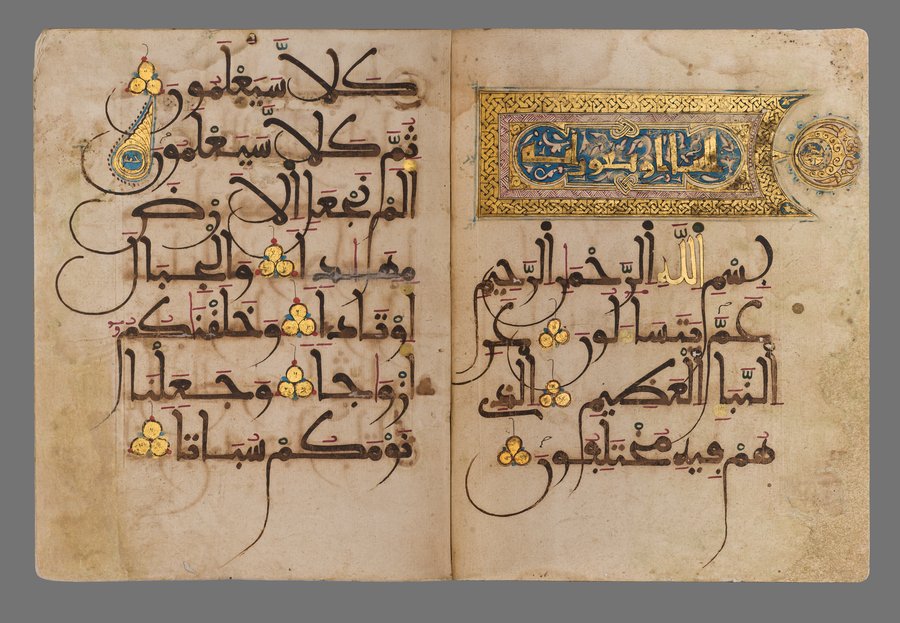 النبا اربعون ايه
بِسْمِ اللَّهِ الرَّحْمَنِ الرَّحِيمِ
عَمَّ يَتَسَاءَلُونَ عَنِ
النَّبَإِ الْعَظِيمِ الَّذِي
هُمْ فِيهِ مُخْتَلِفُونَ
كَلَّا سَيَعْلَمُونَ
ثُمَّ كَلَّا سَيَعْلَمُونَ
أَلَمْ نَجْعَلِ الْأَرْضَ
مِهَادًا وَالْجِبَالَ
أَوْتَادًا وَخَلَقْنَكُمْ
أَزْوَاجًا وَجَعَلْنَا
نَوْمَكُمْ سُبَاتًا